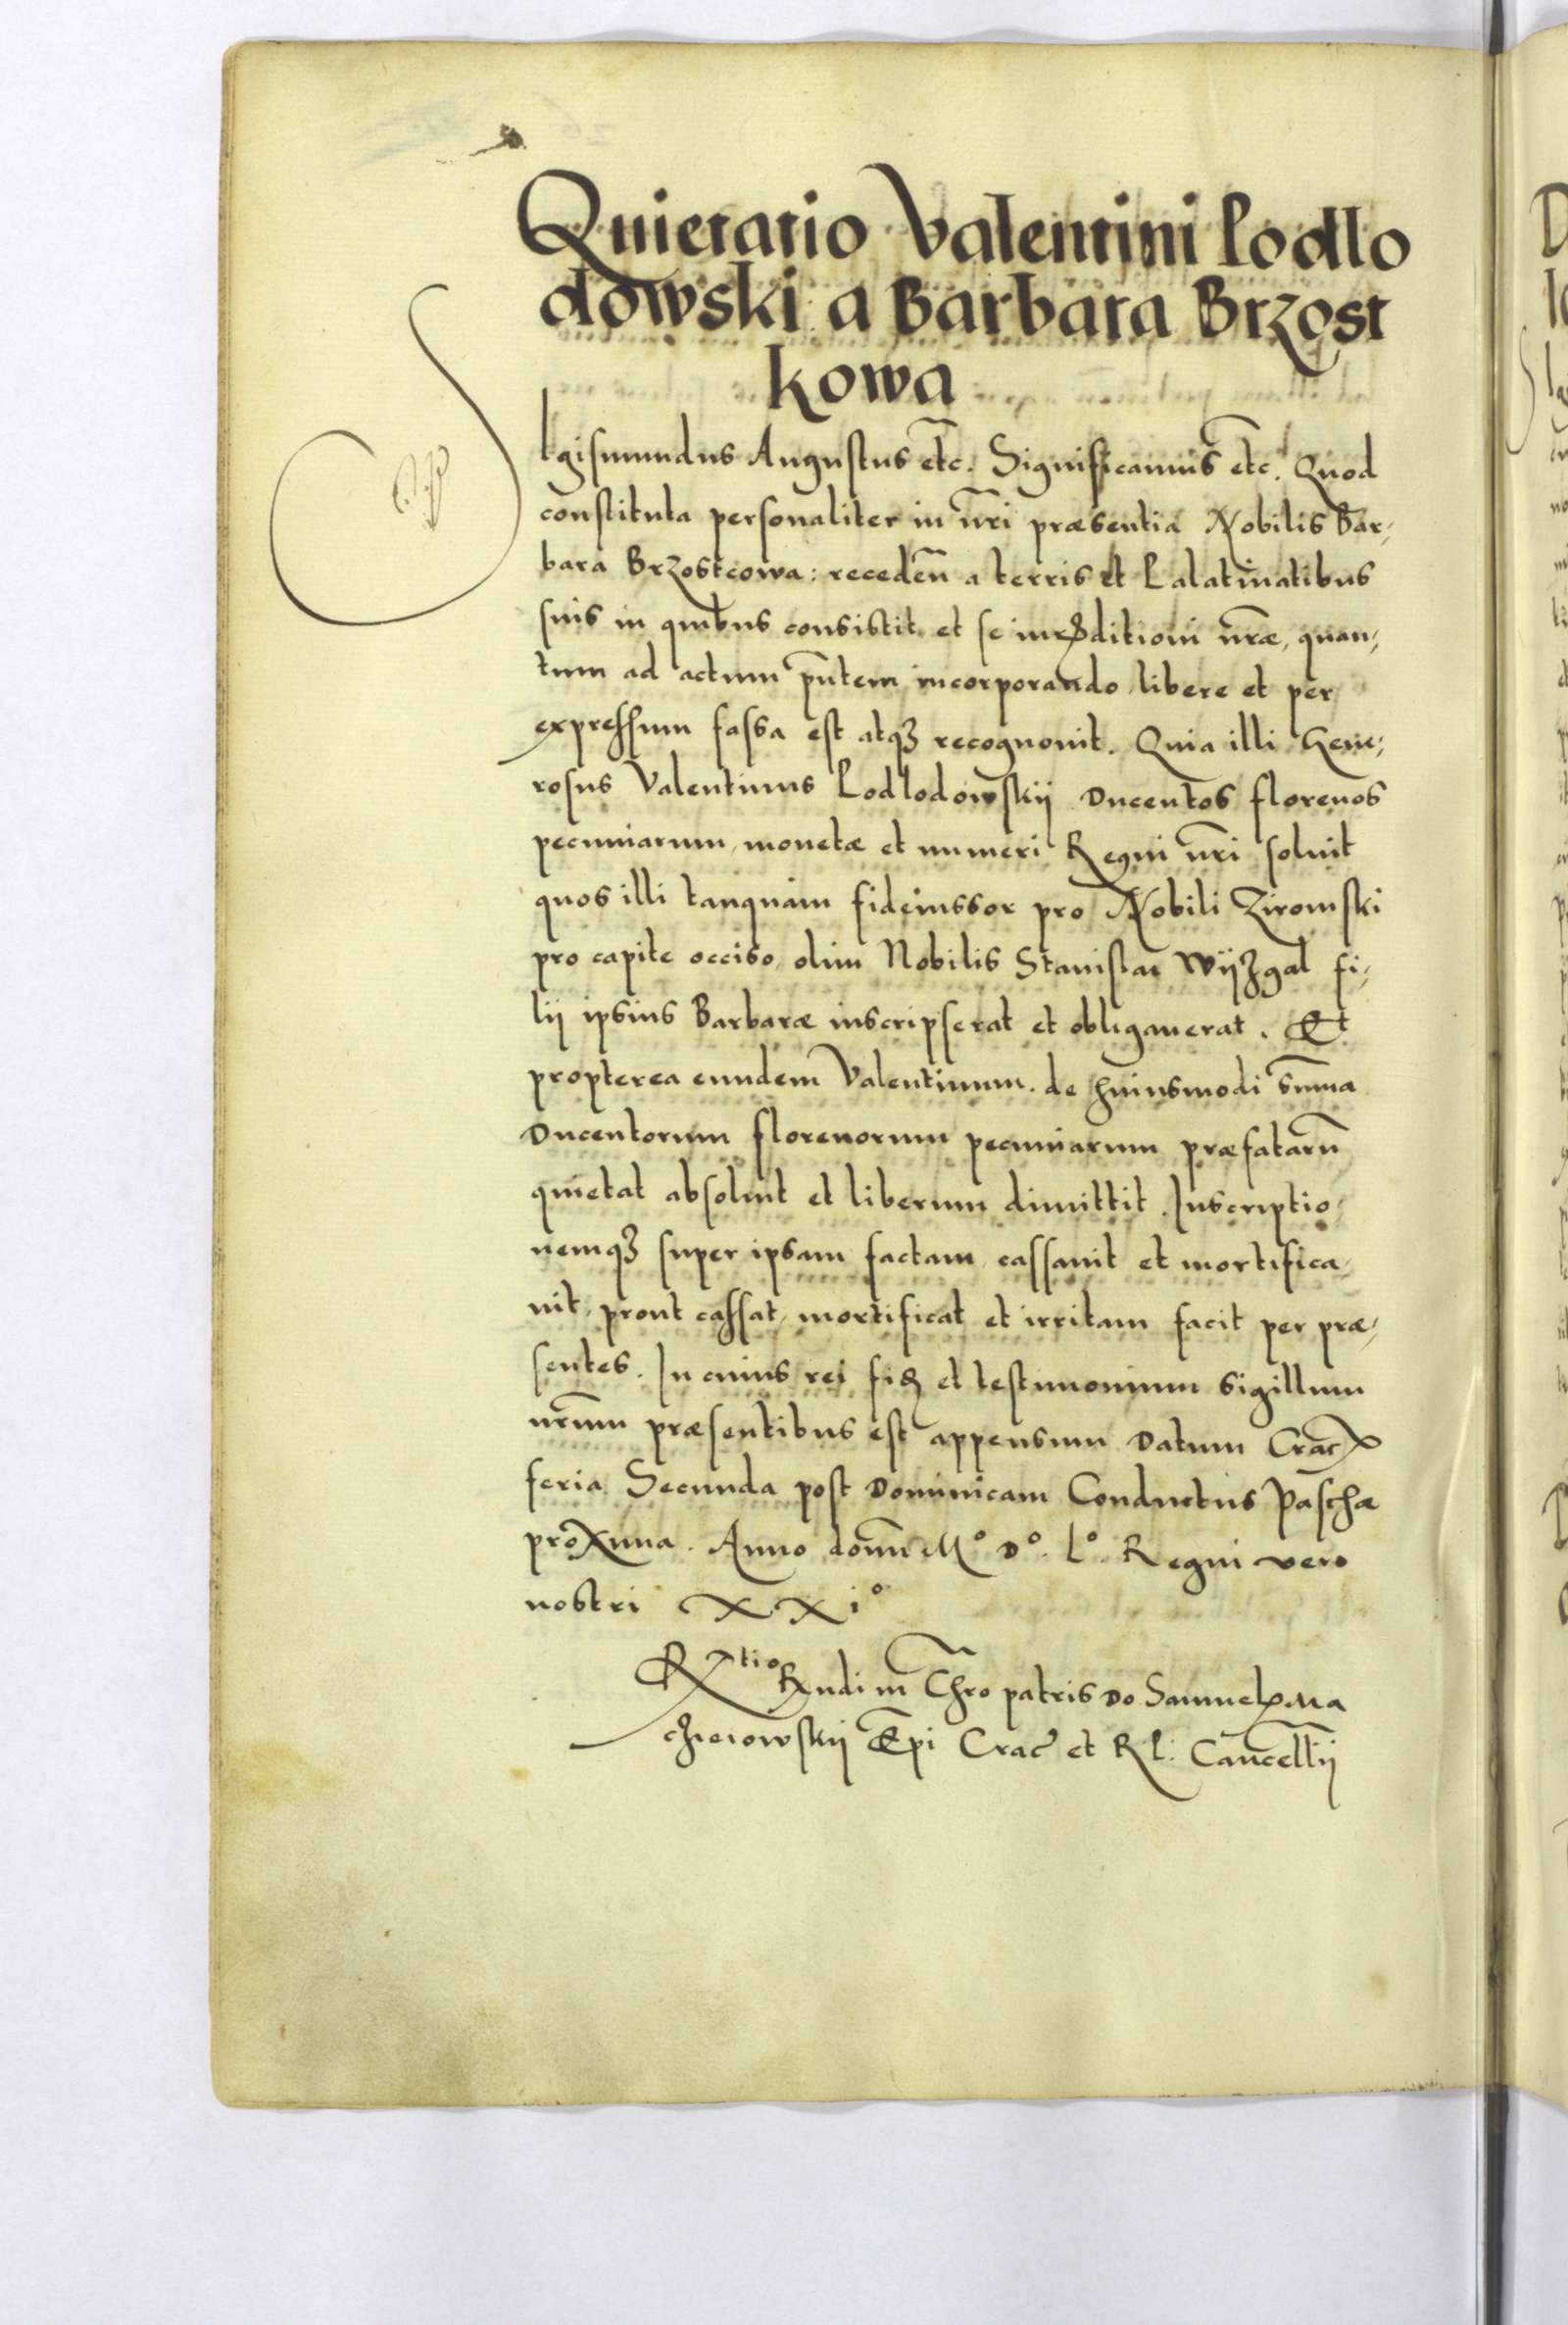 Quietatio Valentini Podlo
dowski a Barbara Brzost
kowa
Sigismundus Augustus etc. Significamus etc. Quod
constituta personaliter in nr̄i præsentia Nobilis Bar,
bara Brzostcowa: recedeñ a terris et Palatinatibus
suis in quibus consistit et se iurisditioni nr̄æ, quan,
tum ad actum pn̄tem incorporando libere et per
expressum fassa est atqȝ recognouit. Quia illi Gene,
rosus Valentinus Podlodowskij Ducentos florenos
pecuniarum, monetæ et numeri Regni nr̄i soluit
quos illi tanquam fideiussor pro Nobili Ziromski
pro capite occiso olim Nobilis Stanislai Wijzgal fi,
lij ipsius Barbaræ inscripserat et obligauerat. Et
propterea eundem Valentinum. de huiusmodi sum̄a
Ducentorum florenorum pecuniarum præfatarū
quietat absoluit et liberum dimittit. Inscriptio,
nemqȝ super ipsam factam cassauit et mortifica,
uit, prout cassat, mortificat et irritam facit per præ,
sentes. In cuius rei fid et testimonium sigillum
nr̄um præsentibus est appensum Datum Crac
feria Secunda post Dominicam Conductus Paschæ
proxima. Anno domī Mº Dº. Lº. Regni vero
nostri XXiº
Rtio Rndi in Chro patris Do Samuel Ma
cheiowskij Ep̄i Crac et R P. Cancellij